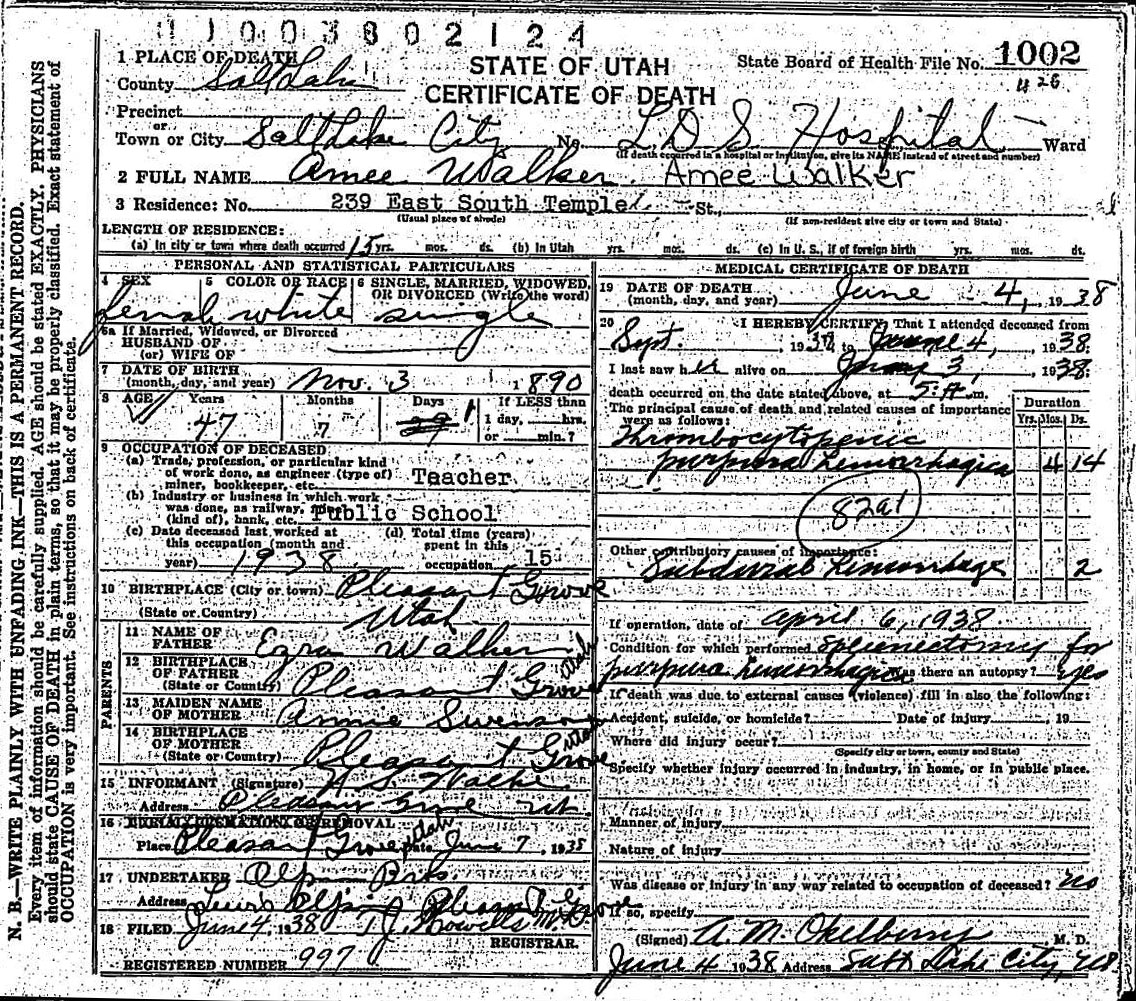 1 1 0 0 3 8 0 2 1 2 4
N. B.—WRITE PLAINLY WITH UNFADING INK—THIS IS A PERMANENT RECORD.
Every item of information should be carefully supplied. AGE should be stated EXACTLY. PHYSICIANS
should state CAUSE OF DEATH in plain terms, so that it may be properly classified. Exact statement of
OCCUPATION is very important. See instructions on back of certificate.
1 PLACE OF DEATH
County Salt Lake
STATE OF UTAH
CERTIFICATE OF DEATH
State Board of Health File No. 1002
426
Precinct
or
Town or City Salt Lake City No. L.D.S. Hospital Ward
(If death occurred in a hospital or institution, give its NAME instead of street and number)
2 FULL NAME Amee Walker Amee Walker
3 Residence: No. 239 East South Temple St.,
(Usual place of abode) (If non-resident give city or town and State)
LENGTH OF RESIDENCE:
(a) In city or town where death occurred 15 yrs. mos. ds. (b) In Utah yrs. mos. ds. (c) In U. S., if of foreign birth yrs. mos. ds.
PERSONAL AND STATISTICAL PARTICULARS
4 SEX 5 COLOR OR RACE 6 SINGLE, MARRIED, WIDOWED, OR DIVORCED (Write the word)
female white single
6a If Married, Widowed, or Divorced
HUSBAND OF
(or) WIFE OF
7 DATE OF BIRTH
(month, day, and year) Nov. 3 1890
8 AGE Years Months Days If LESS than
47 7 1 1 day, hrs.
or min.?
9 OCCUPATION OF DECEASED
(a) Trade, profession, or particular kind
of work done, as engineer (type of)
miner, bookkeeper, etc. Teacher
(b) Industry or business in which work
was done, as railway, mine
(kind of), bank, etc. Public School
(c) Date deceased last worked at
this occupation (month and
year) 1938
(d) Total time (years)
spent in this
occupation 15
10 BIRTHPLACE (City or town) Pleasant Grove
(State or Country) Utah
PARENTS
11 NAME OF
FATHER Ezra Walker
12 BIRTHPLACE
OF FATHER
(State or Country) Pleasant Grove Utah
13 MAIDEN NAME
OF MOTHER Annie Swenson
14 BIRTHPLACE
OF MOTHER
(State or Country) Pleasant Grove Utah
15 INFORMANT (Signature)
Address Pleasant Grove Ut.
16 BURIAL, CREMATION OR REMOVAL
Place Pleasant Grove Utah Date June 7, 1938
17 UNDERTAKER Olpin Bros.
Address Pleasant Grove
18 FILED June 4, 1938 T. J. Howells M.D.
REGISTRAR.
REGISTERED NUMBER 997
MEDICAL CERTIFICATE OF DEATH
19 DATE OF DEATH
(month, day, and year) June 4, 1938
20 I HEREBY CERTIFY, That I attended deceased from
Sept. 1937 to June 4, 1938.
I last saw her alive on June 3, 1938.
death occurred on the date stated above, at 5:A m.
The principal cause of death and related causes of importance
were as follows:
Duration
Yrs. Mos. Ds.
Thrombocytopenic
purpura hemorrhagica 4 14
82a1
Other contributory causes of importance:
Subdural hemorrhage 2
If operation, date of April 6, 1938
Condition for which performed splenectomy for
purpura hemorrhagica Was there an autopsy? yes
If death was due to external causes (violence) fill in also the following:
Accident, suicide, or homicide? Date of injury , 19
Where did injury occur?
(Specify city or town, county and State)
Specify whether injury occurred in industry, in home, or in public place.
Manner of injury
Nature of injury
Was disease or injury in any way related to occupation of deceased? no
If so, specify
(Signed) A. M. Okelberry M. D.
June 4 1938 Address Salt Lake City,